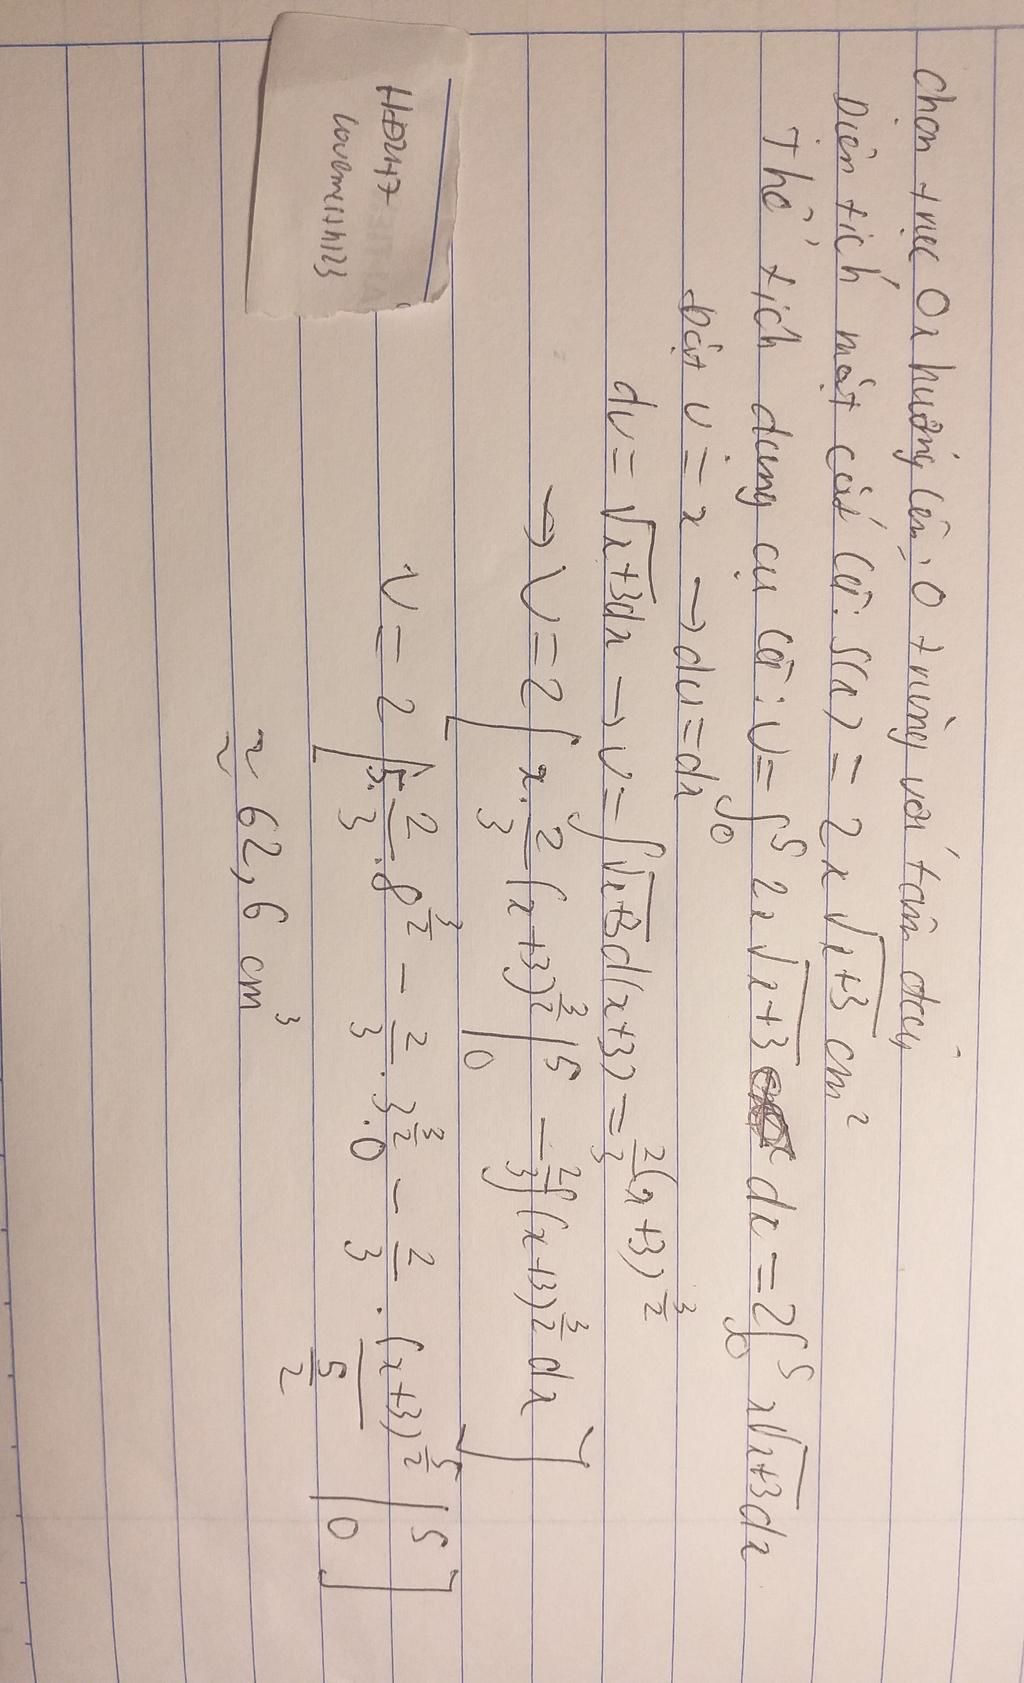 Chọn trục Ox hướng lên, O trùng với tâm đáy
Diện tích mặt cắt là: S(x) = 2x√(x+3) cm²
Thể tích dụng cụ là: V = ∫₀⁵ 2x√(x+3) dx = 2∫₀⁵ x√(x+3) dx
Đặt u = x → du = dx
dv = √(x+3) dx → v = ∫√(x+3) d(x+3) = 2/3 (x+3)^(3/2)
→ V = 2 [ x . 2/3 (x+3)^(3/2) |₀⁵ - 2/3 ∫ (x+3)^(3/2) dx ]
V = 2 [ 5 . 2/3 . 8^(3/2) - 2/3 . 3^(3/2) . 0 - 2/3 . (x+3)^(5/2) / (5/2) |₀⁵ ]
≈ 62,6 cm³
HĐ2H7